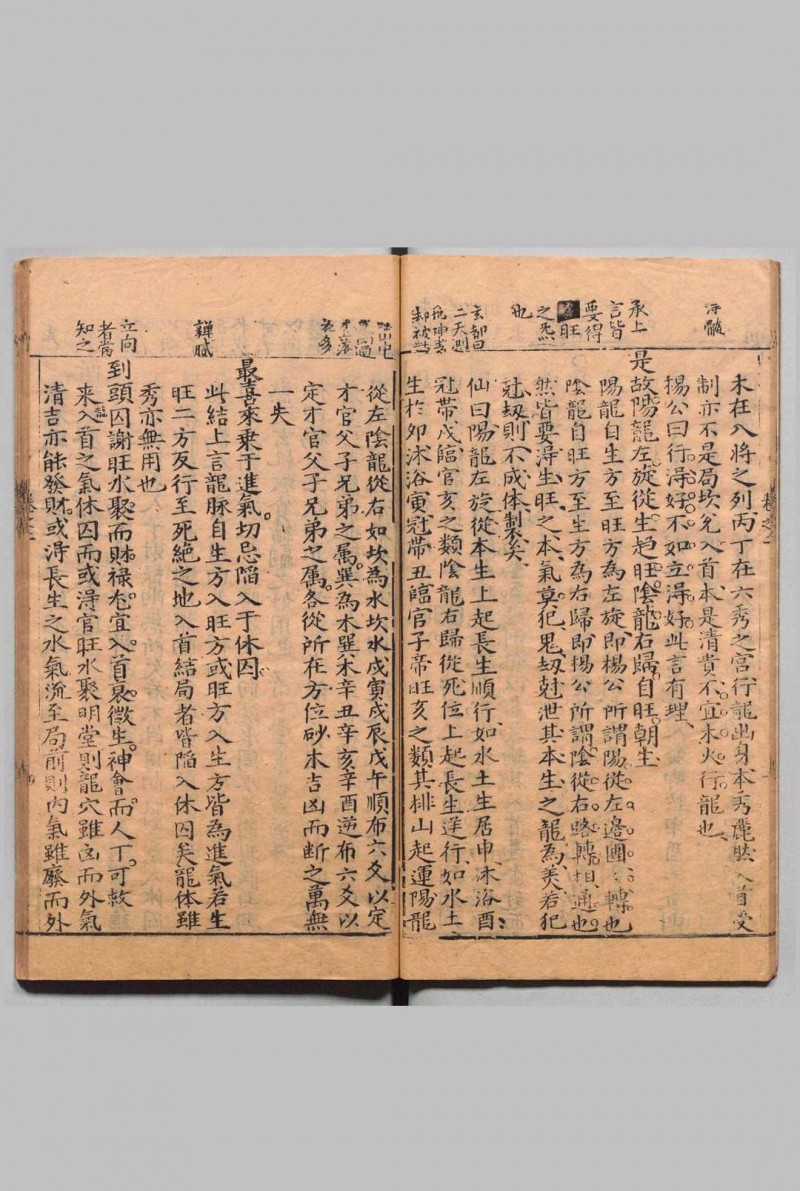 浮髓
承上
言皆
要得
旺
之炁
也
玄都曰
二天測
未在八將之列丙丁在六秀之宮行龍出身本秀麗然入首受
制亦不是局坎兌入首本是清貴不宜木火行龍也
楊公曰行淂好不如立淂好此言有理
是故陽龍左旋從生趋旺陰龍右歸自旺朝生
陽龍自生方至旺方為左旋即楊公所謂陽從左邉團〻轉也
陰龍自旺方至生方為右歸即揚公所謂陰從右路轉相通也
然皆要淂生旺之本氣莫犯鬼刼尅泄其本生之龍為美若犯
尅刼則不成体製矣
仙曰陽龍左旋從本生上起長生順行如水土生居申沐浴酉
冠帶戌臨官亥之類陰龍右歸從死位上起長生逆行如水土
生於夘沐浴寅冠帶丑臨官子帝旺亥之類其排山起運陽龍
立向
者當
知之
從左陰龍從右如坎為水坎水戊寅戊辰戊午順布六爻以定
才官父子兄弟之属巽為木巽木辛丑辛亥辛酉逆布六爻以
定才官父子兄弟之属各從所在方位砂木吉凶而断之萬無
一失
最喜來乗于進氣切忌陷入于休囚
此結上言龍脉自生方入旺方或旺方入生方皆為進氣若生
旺二方反行至死絶之地入首結局者皆陷入休囚矣龍体雖
秀亦無用也
到頭囚謝旺水聚而財禄尨宜入首衰微生神會而人丁可敘
來入首之氣休囚而或淂官旺水聚明堂則龍穴雖凶而外氣
清吉亦能發财或淂長生之水氣流至局前則内氣雖廢而外